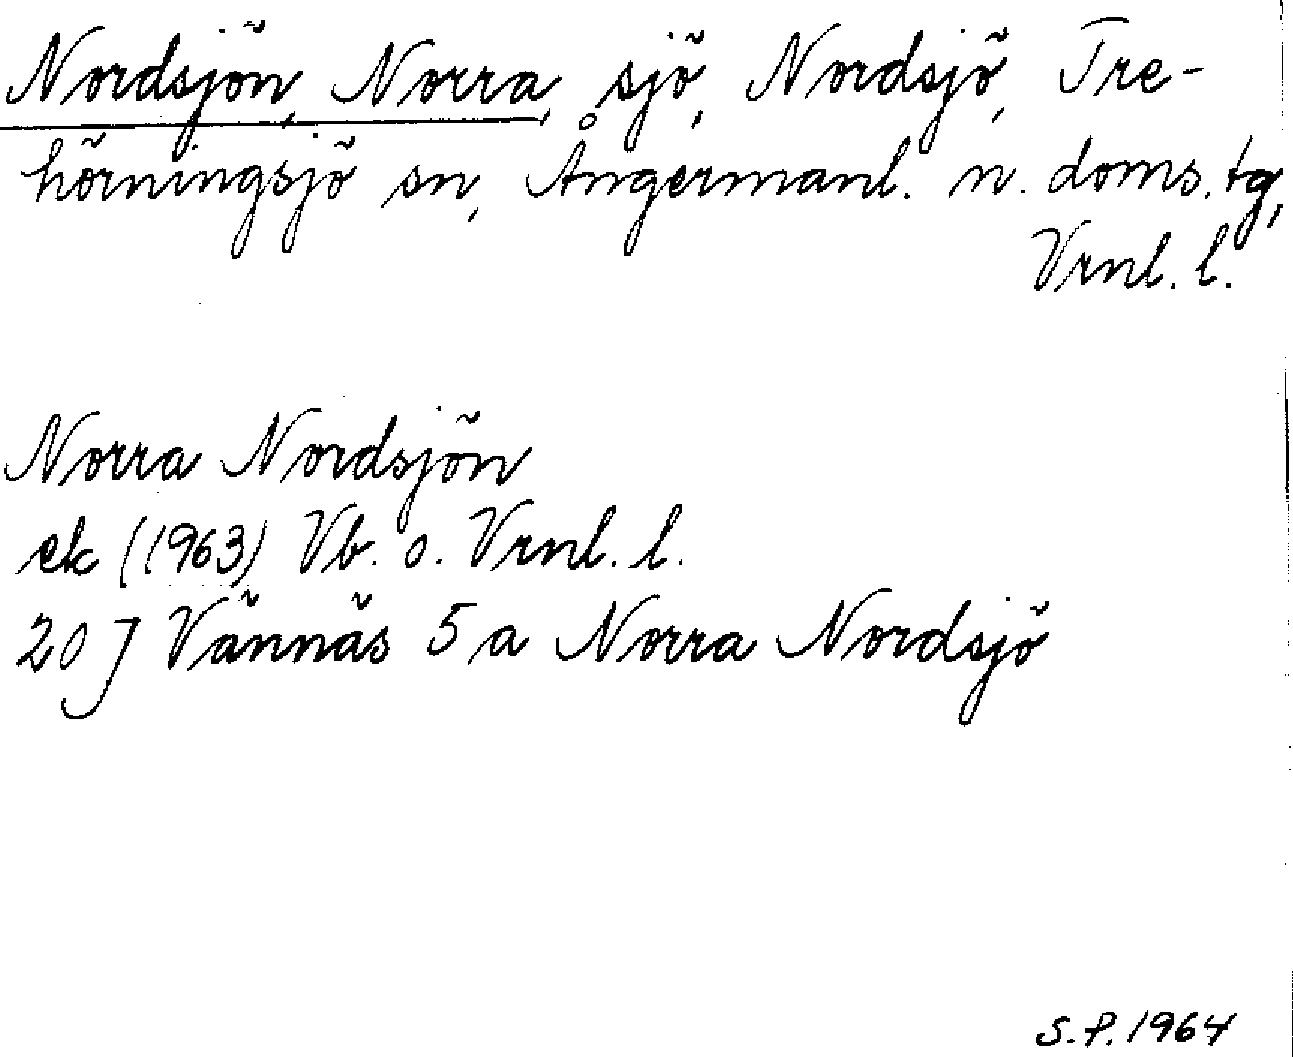 Nordsjön, Norra, sjö, Nordsjö, Tre-
hörningsjö sn, Ångermanl. n. doms. tg,
Vrnl. l.
Norra Nordsjön
ek (1963) Vb. o. Vrnl. l.
20 J Vännäs 5 a Norra Nordsjö
S.P. 1964